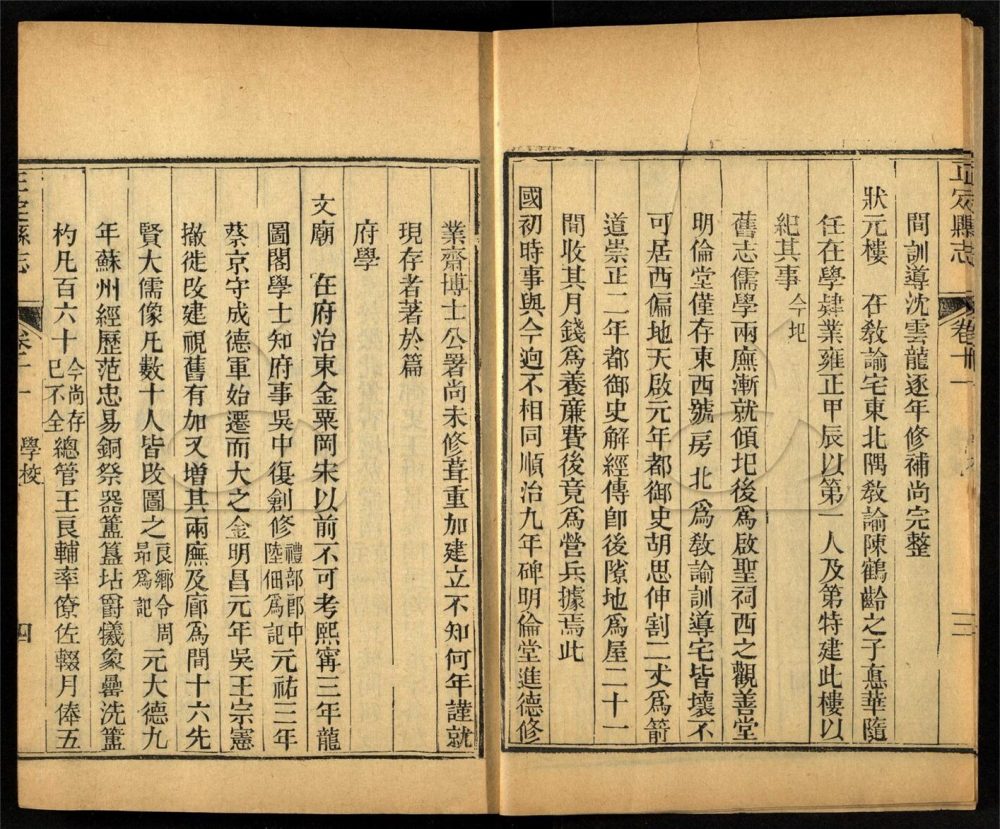 正定縣志
卷十一
三
間訓導沈雲龍逐年修補尚完整
狀元樓 在教諭宅東北隅教諭陳鶴齡之子悳華隨
任在學肄業雍正甲辰以第一人及第特建此樓以
紀其事今圯
舊志儒學兩廡漸就傾圯後爲啟聖祠西之觀善堂
明倫堂僅存東西號房北爲教諭訓導宅皆壞不
可居西偏地天啟元年都御史胡思伸割二丈爲箭
道崇正二年都御史解經傳卽後隙地爲屋二十一
間收其月錢爲養亷費後竟爲營兵據焉此
國初時事與今逈不相同順治九年碑明倫堂進德修
業齋博士公署尚未修葺重加建立不知何年謹就
現存者著於篇
府學
文廟 在府治東金粟岡宋以前不可考熙寧三年龍
圖閣學士知府事吳中復創修禮部郎中陸佃爲記元祐三年
蔡京守成德軍始遷而大之金明昌元年吳王宗憲
撤徙改建視舊有加又增其兩廡及廊爲間十六先
賢大儒像凡數十人皆改圖之良鄉令周昂爲記元大德九
年蘇州經歷范忠易銅祭器簠簋坫爵犧象罍洗簠
杓凡百六十今尚存已不全總管王良輔率僚佐輟月俸五
正定縣志
卷十一
學校
四